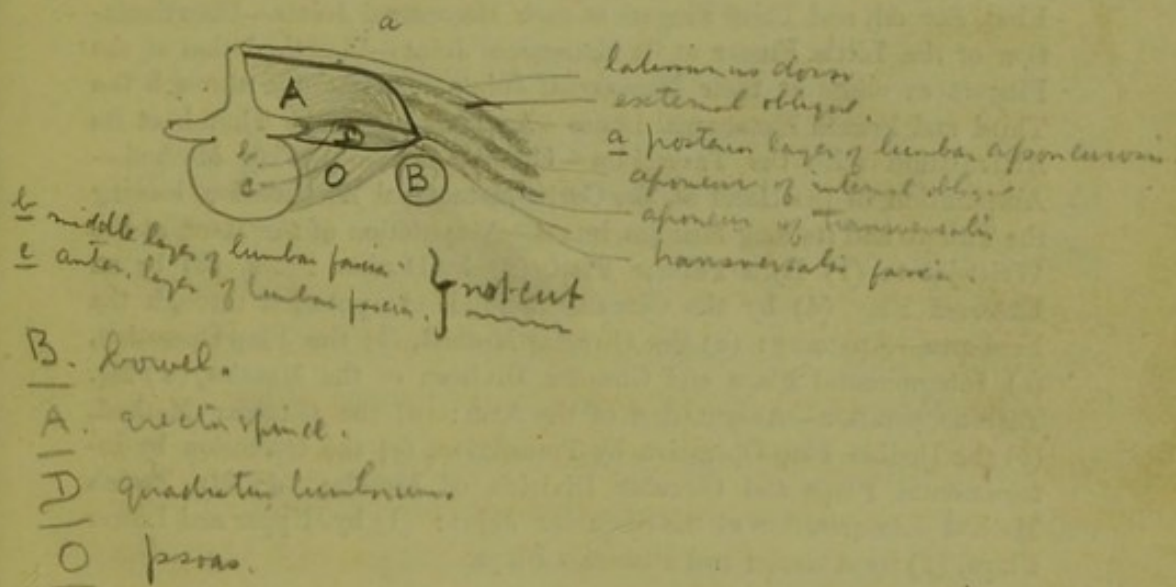 a
latissimus dorsi
external oblique.
a posterior layer of lumbar aponeurosis
aponeur of internal oblique
aponeur of transversalis
transversalis fascia.
A
D
b
c
O
B
b middle layer of lumbar fascia.
c anter. layer of lumbar fascia.
} not cut
B. bowel.
A. erector spinae.
D quadratus lumborum.
O psoas.